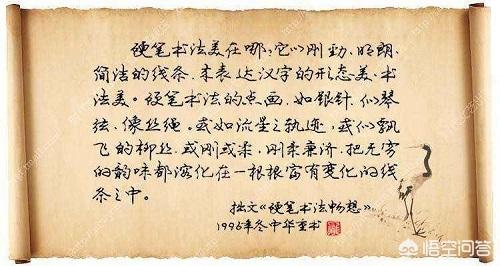 硬笔书法美在哪:它以刚劲、明朗、
简洁的线条,来表达汉字的形态美、书
法美。硬笔书法的点画,如银针、似琴
弦、像丝绳。或如流星之轨迹,或似飘
飞的柳丝,或刚或柔,刚柔兼济,把无穷
的韵味都溶化在一根根富有变化的线
条之中。
拙文《硬笔书法畅想》
1995年冬中华重书
悟空问答